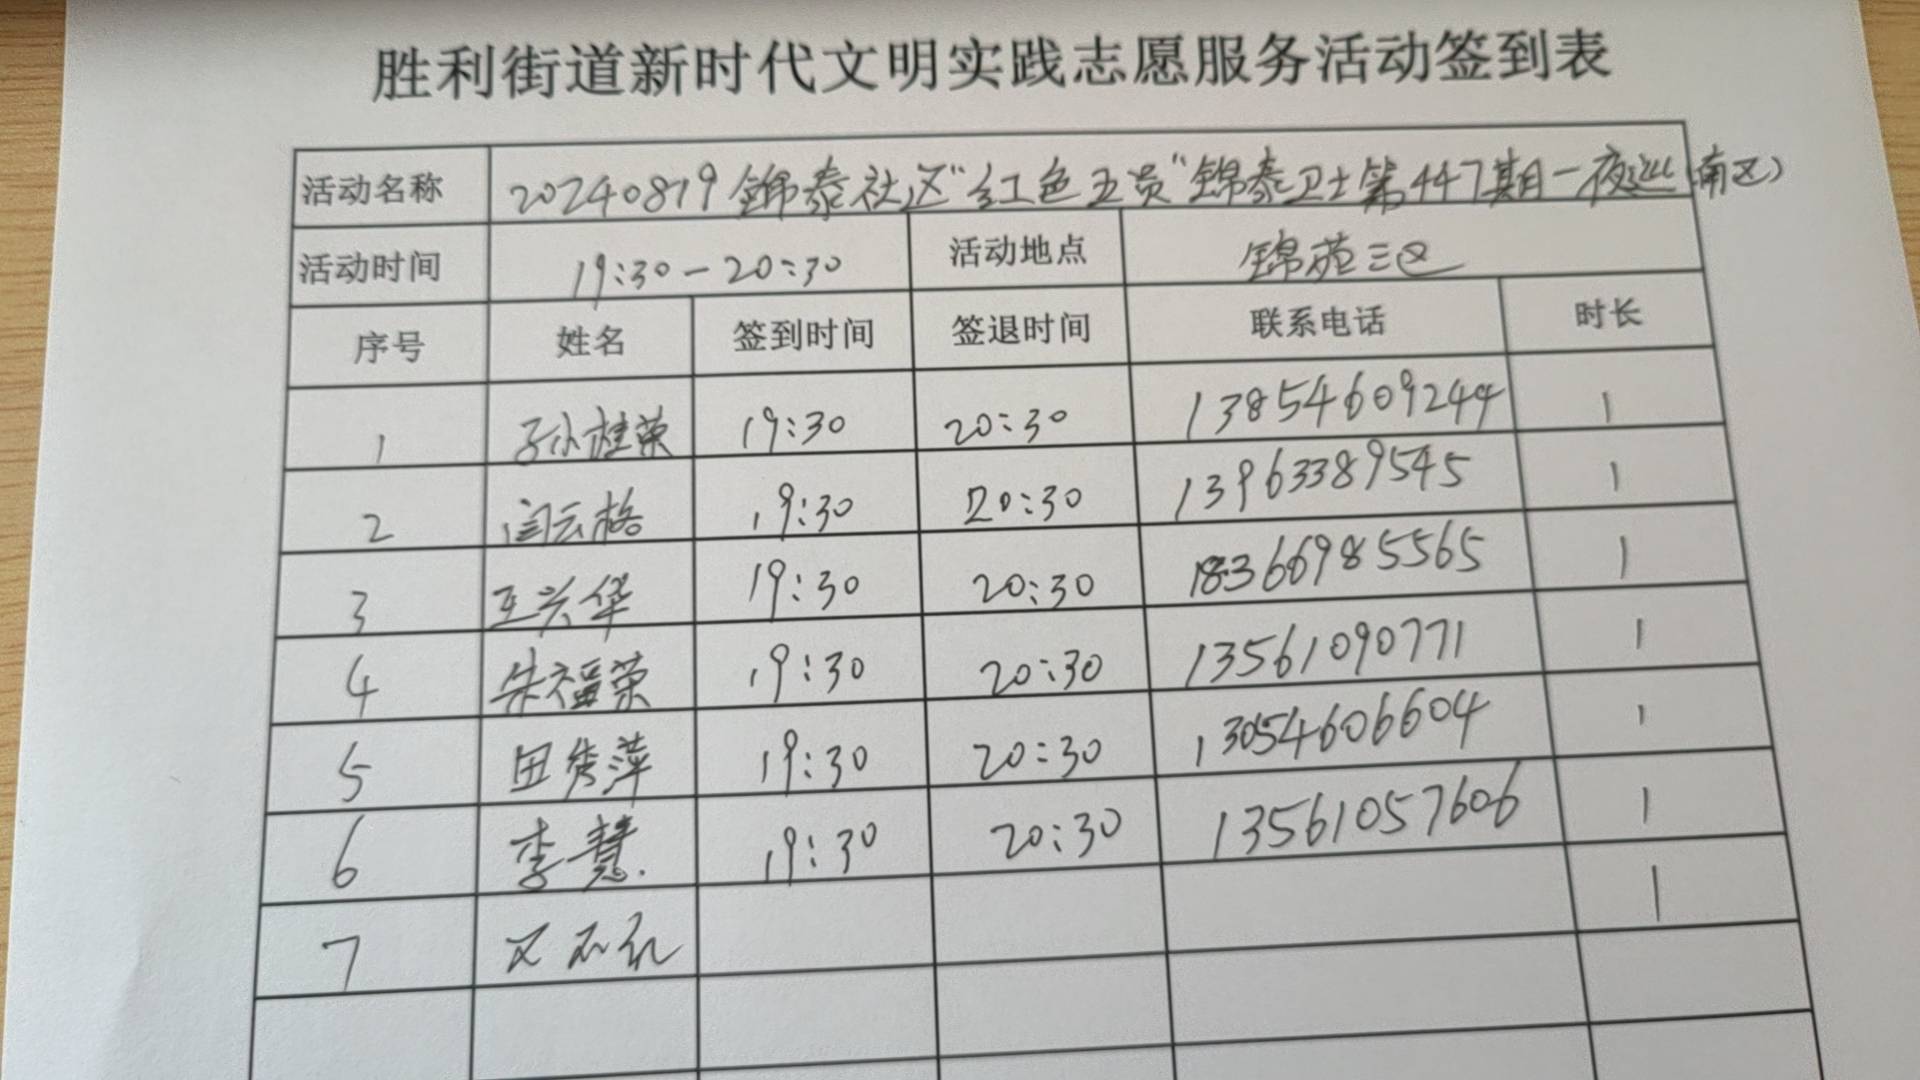 胜利街道新时代文明实践志愿服务活动签到表
活动名称 20240819锦泰社区"红色五员"锦泰卫士第447期一夜巡(南区)
活动时间 19:30-20:30 活动地点 锦苑三区
序号 姓名 签到时间 签退时间 联系电话 时长
1 孙桂荣 19:30 20:30 13854609244 1
2 闫云格 19:30 20:30 13963389545 1
3 王兴华 19:30 20:30 18366985565 1
4 朱福荣 19:30 20:30 13561090771 1
5 田秀萍 19:30 20:30 13054606604 1
6 李慧 19:30 20:30 13561057606 1
7 1